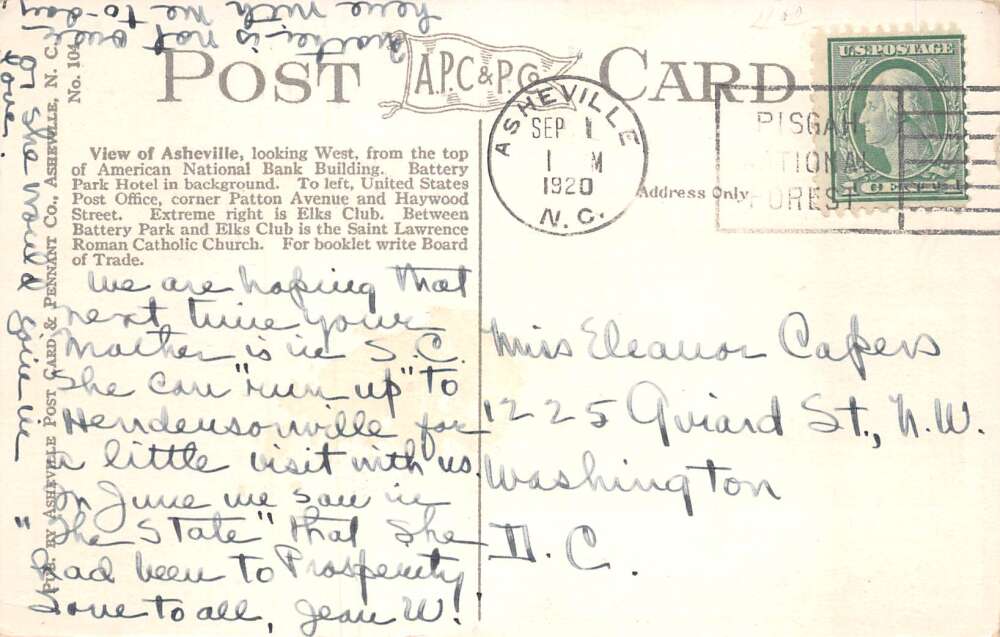 POST CARD
A.P.C & P.Co.
U.S. POSTAGE
1 CENT 1
ASHEVILLE
SEP 1
1 M
1920
N.C.
PISGAH
NATIONAL
FOREST
Address Only
View of Asheville, looking West, from the top
of American National Bank Building. Battery
Park Hotel in background. To left, United States
Post Office, corner Patton Avenue and Haywood
Street. Extreme right is Elks Club. Between
Battery Park and Elks Club is the Saint Lawrence
Roman Catholic Church. For booklet write Board
of Trade.
We are hoping that
next time your
Mother is in S.C.
She can "run up" to
Hendersonville for
a little visit with us.
In June we saw in
"The State" that she
had been to Prosperity
Love to all, Jean W.
Mother is not over
here with me to-day
or she would join in
love.
Miss Eleanor Capers
1225 Gviard St., N.W.
Washington
D.C.
PUB. BY ASHEVILLE POST CARD & PENNANT CO., ASHEVILLE, N. C.
No. 104